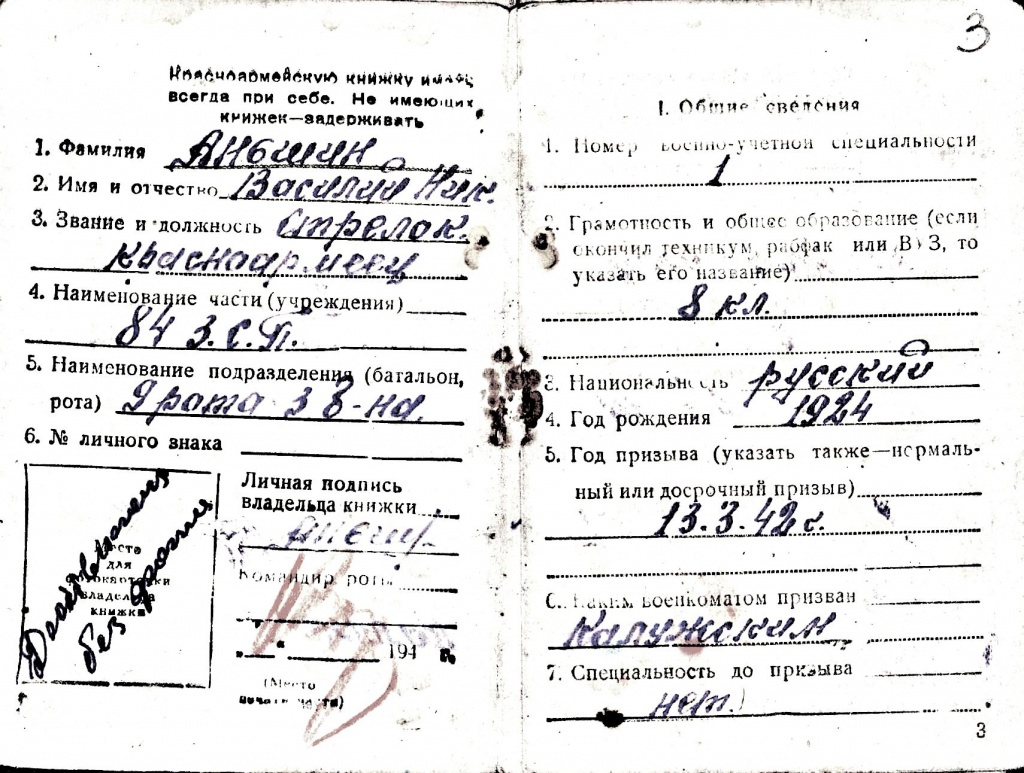 Красноармейскую книжку иметь
всегда при себе. Не имеющих
книжек—задерживать
1. Фамилия Аньшин
2. Имя и отчество Василий Ник.
3. Звание и должность Стрелок.
Красноармеец
4. Наименование части (учреждения)
84 З.С.П.
5. Наименование подразделения (батальон,
рота) 9 рота 3 б-на.
6. № личного знака
Место
для
фотокарточки
владельца
книжки
Действительна
без фото
Личная подпись
владельца книжки
Аньши
Командир роты
„ “ 194 г.
(Место
печати части)
3
I. Общие сведения
1. Номер военно-учетной специальности
1
2. Грамотность и общее образование (если
окончил техникум, рабфак или ВУЗ, то
указать его название)
8 кл.
3. Национальность русский
4. Год рождения 1924
5. Год призыва (указать также—нормаль-
ный или досрочный призыв)
13.3.42 г.
6. Каким военкоматом призван
Калужским
7. Специальность до призыва
нет.
3